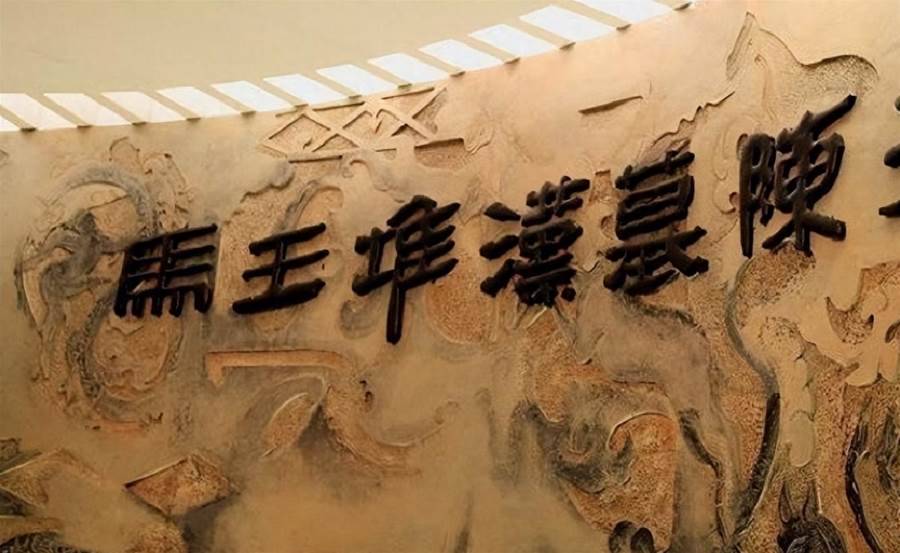 馬王堆漢墓陳